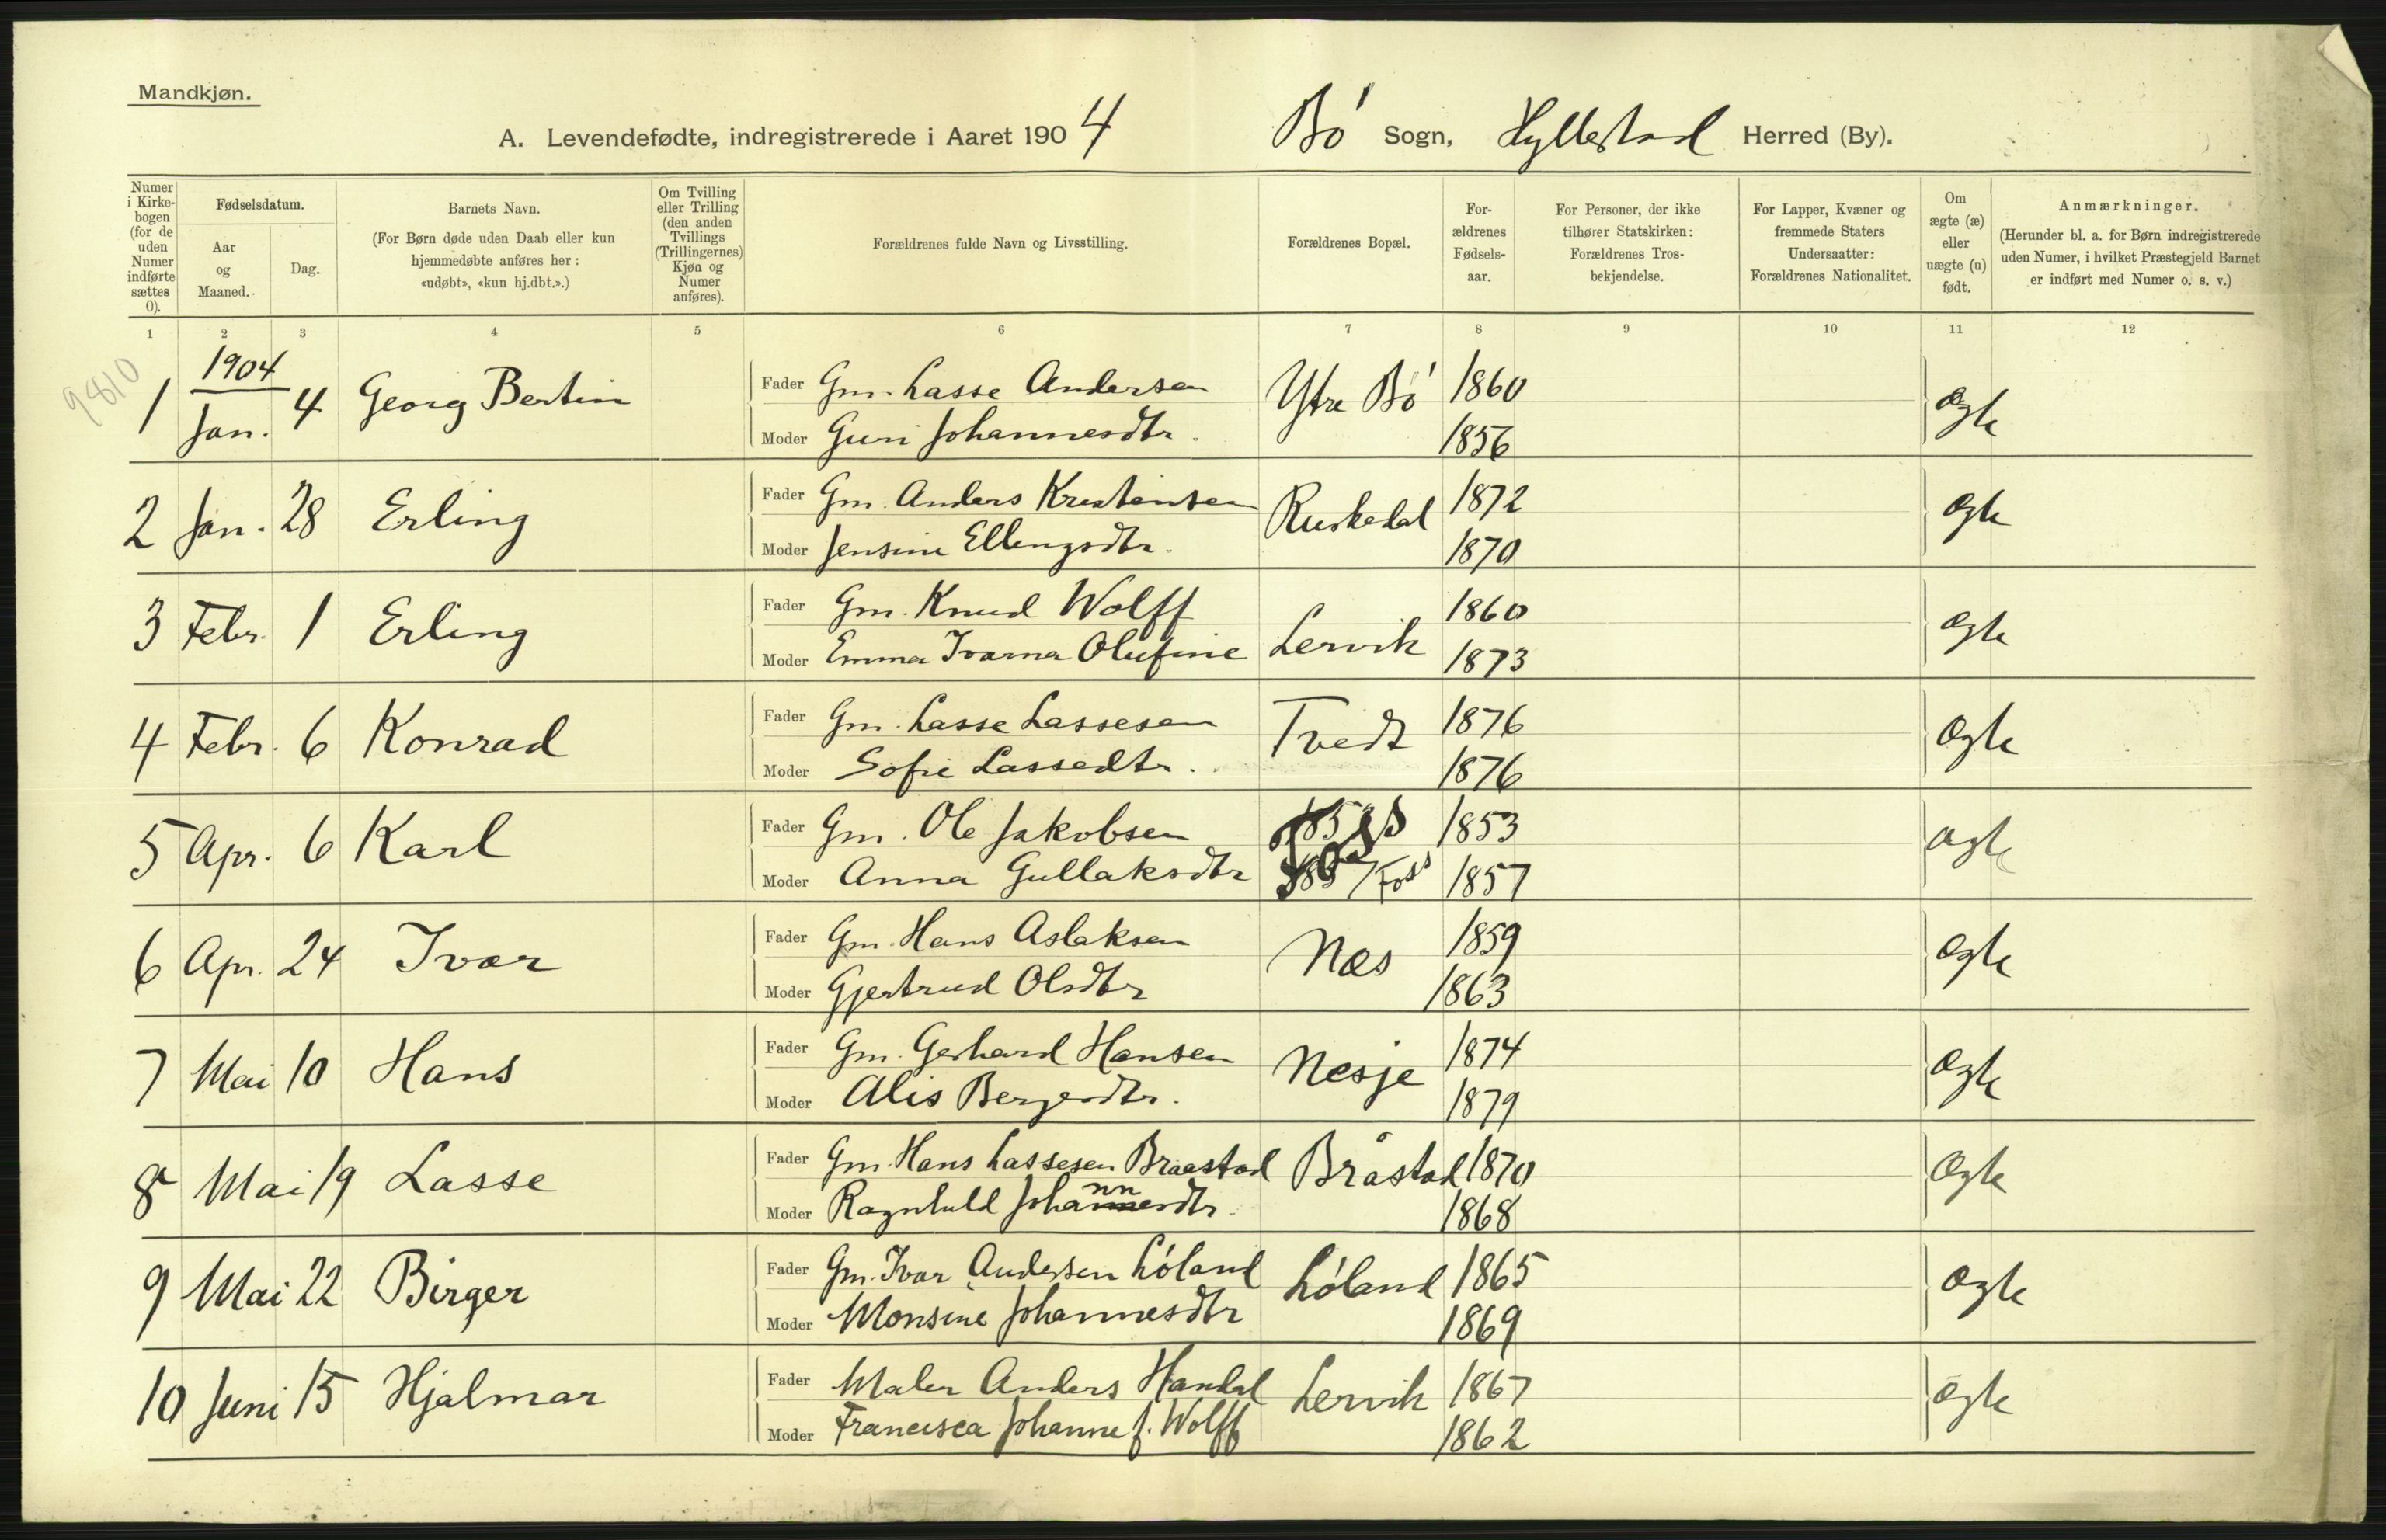 Mandkjøn.
A. Levendefødte, indregistrerede i Aaret 1904 Bø Sogn, Hyllestad Herred (By).
Numer i Kirkebogen (for de uden Numer indførte sættes 0).
Fødselsdatum.
Aar og Maaned.
Dag.
Barnets Navn.
(For Børn døde uden Daab eller kun hjemmedøbte anføres her: «udøbt», «kun hj.dbt.».)
Om Tvilling eller Trilling (den anden Tvillings (Trillingernes) Kjøn og Numer anføres).
Forældrenes fulde Navn og Livsstilling.
Forældrenes Bopæl.
Forældrenes Fødselsaar.
For Personer, der ikke tilhører Statskirken: Forældrenes Trosbekjendelse.
For Lapper, Kvæner og fremmede Staters Undersaatter: Forældrenes Nationalitet.
Om ægte (æ) eller uægte (u) født.
Anmærkninger.
(Herunder bl. a. for Børn indregistrerede uden Numer, i hvilket Præstegjeld Barnet er indført med Numer o. s. v.)
1 2 3 4 5 6 7 8 9 10 11 12
9810
1904
1 Jan. 4 Georg Bertin Fader Gm. Lasse Andersen Ytre Bø 1860 ægte
Moder Guri Johannesdtr. 1856
2 Jan. 28 Erling Fader Gm. Anders Kristensen Ruskedal 1872 ægte
Moder Jensine Ellengsdtr. 1870
3 Febr. 1 Erling Fader Gm. Knud Wolff Lervik 1860 ægte
Moder Emma Ivarna Olufine 1873
4 Febr. 6 Konrad Fader Gm. Lasse Lassesen Tvedt 1876 ægte
Moder Sofie Lassedtr. 1876
5 Apr. 6 Karl Fader Gm. Ole Jakobsen Foss 1853 ægte
Moder Anna Gullaksdtr Foss 1857
6 Apr. 24 Ivar Fader Gm. Hans Aslaksen Næs 1859 ægte
Moder Gjertrud Olsdtr 1863
7 Mai 10 Hans Fader Gm. Gerhard Hansen Nesje 1874 ægte
Moder Alis Bergesdtr. 1879
8 Mai 19 Lasse Fader Gm. Hans Lassesen Braastad Bråstad 1870 ægte
Moder Ragnhild Johannesdtr. 1868
9 Mai 22 Birger Fader Gm. Ivar Andersen Løland Løland 1865 ægte
Moder Monsine Johannesdtr 1869
10 Juni 15 Hjalmar Fader Maler Anders Handal Lervik 1867 ægte
Moder Francisca Johanne f. Wolff 1862